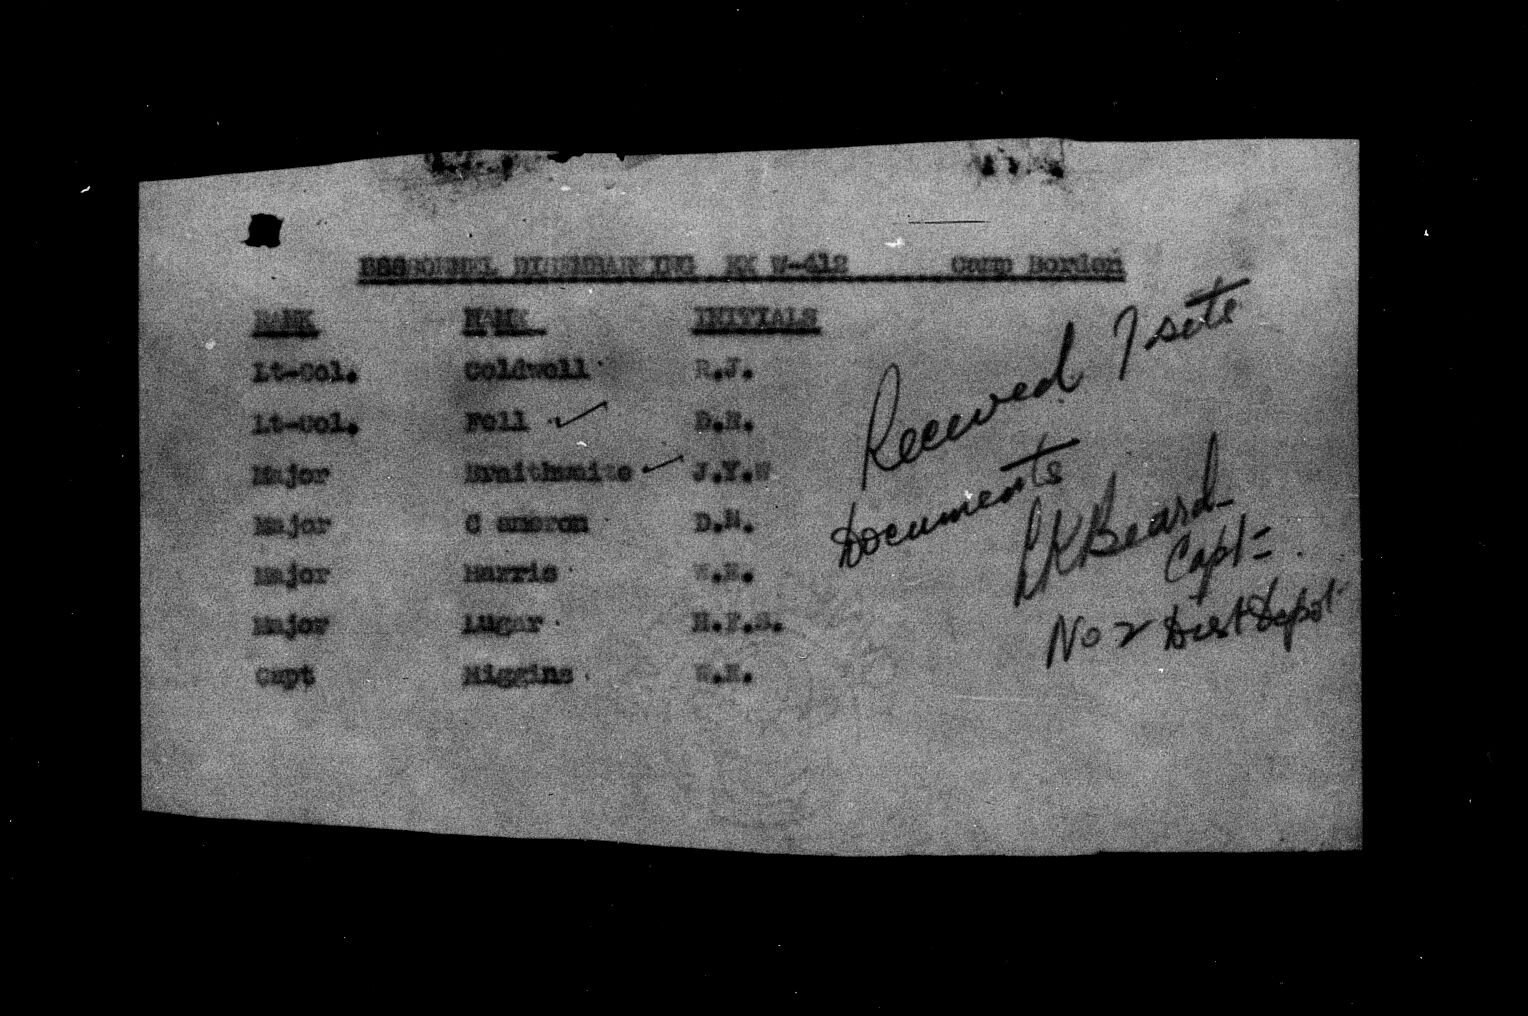 PERSONNEL DISEMBARKING EX W-412 Camp Borden
RANK NAME INITIALS
Lt-Col. Coldwell R.J.
Lt-Col. Fell D.H.
Major Braithwaite J.Y.W
Major C ameron D.M.
Major Harris W.E.
Major Lugar H.F.S.
Capt Higgins W.H.
Received 7 sets
Documents
Beard
Capt=
No 2 Dist Depot